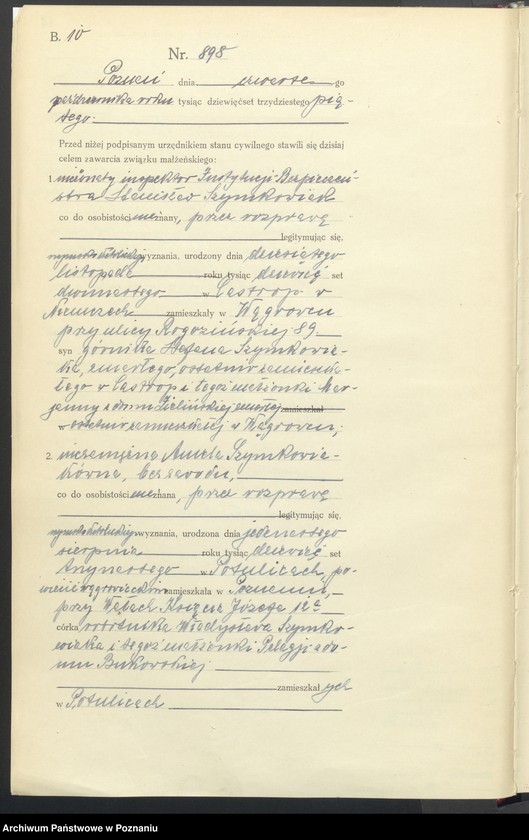 B. 10
Nr. 898
Poznań dnia czwarte go
października roku tysiąc dziewięćset trzydziestego pią-
tego.
Przed niżej podpisanym urzędnikiem stanu cywilnego stawili się dzisiaj
celem zawarcia związku małżeńskiego:
1. nieżonaty inspektor Instytucji Bezpieczeń-
stwa Stanisław Szymkowiak
co do osobistości nieznany, przez rozprawę
legitymując się,
rzymsko katolickiego wyznania, urodzony dnia dziesiątego
listopada roku tysiąc dziewięć set
dwunastego w Castrop w
Niemczech zamieszkały w Wągrowcu
przy ulicy Rogozińskiej 89
syn górnika Stefana Szymkowia-
ka, zmarłego, ostatnio zamieszka-
łego w Castrop i tegoż małżonki Mar-
janny z domu Zielińskiej zmarłej zamieszkał
w ostatnio zamieszkałej w Wągrowcu;
2. niezamężna Aniela Szymkowia-
kówna, bez zawodu,
co do osobistości nieznana, przez rozprawę
legitymując się,
rzymsko katolickiego wyznania, urodzona dnia jedenastego
sierpnia roku tysiąc dziewięć set
trzynastego w Potulicach, po-
wiecie wągrowieckim zamieszkała w Poznaniu,
przy Wałach Księcia Józefa 12a
córka robotnika Władysława Szymko-
wiaka i tegoż małżonki Pelagji z do-
mu Bukowskiej
zamieszkał ych
w Potulicach
Archiwum Państwowe w Poznaniu